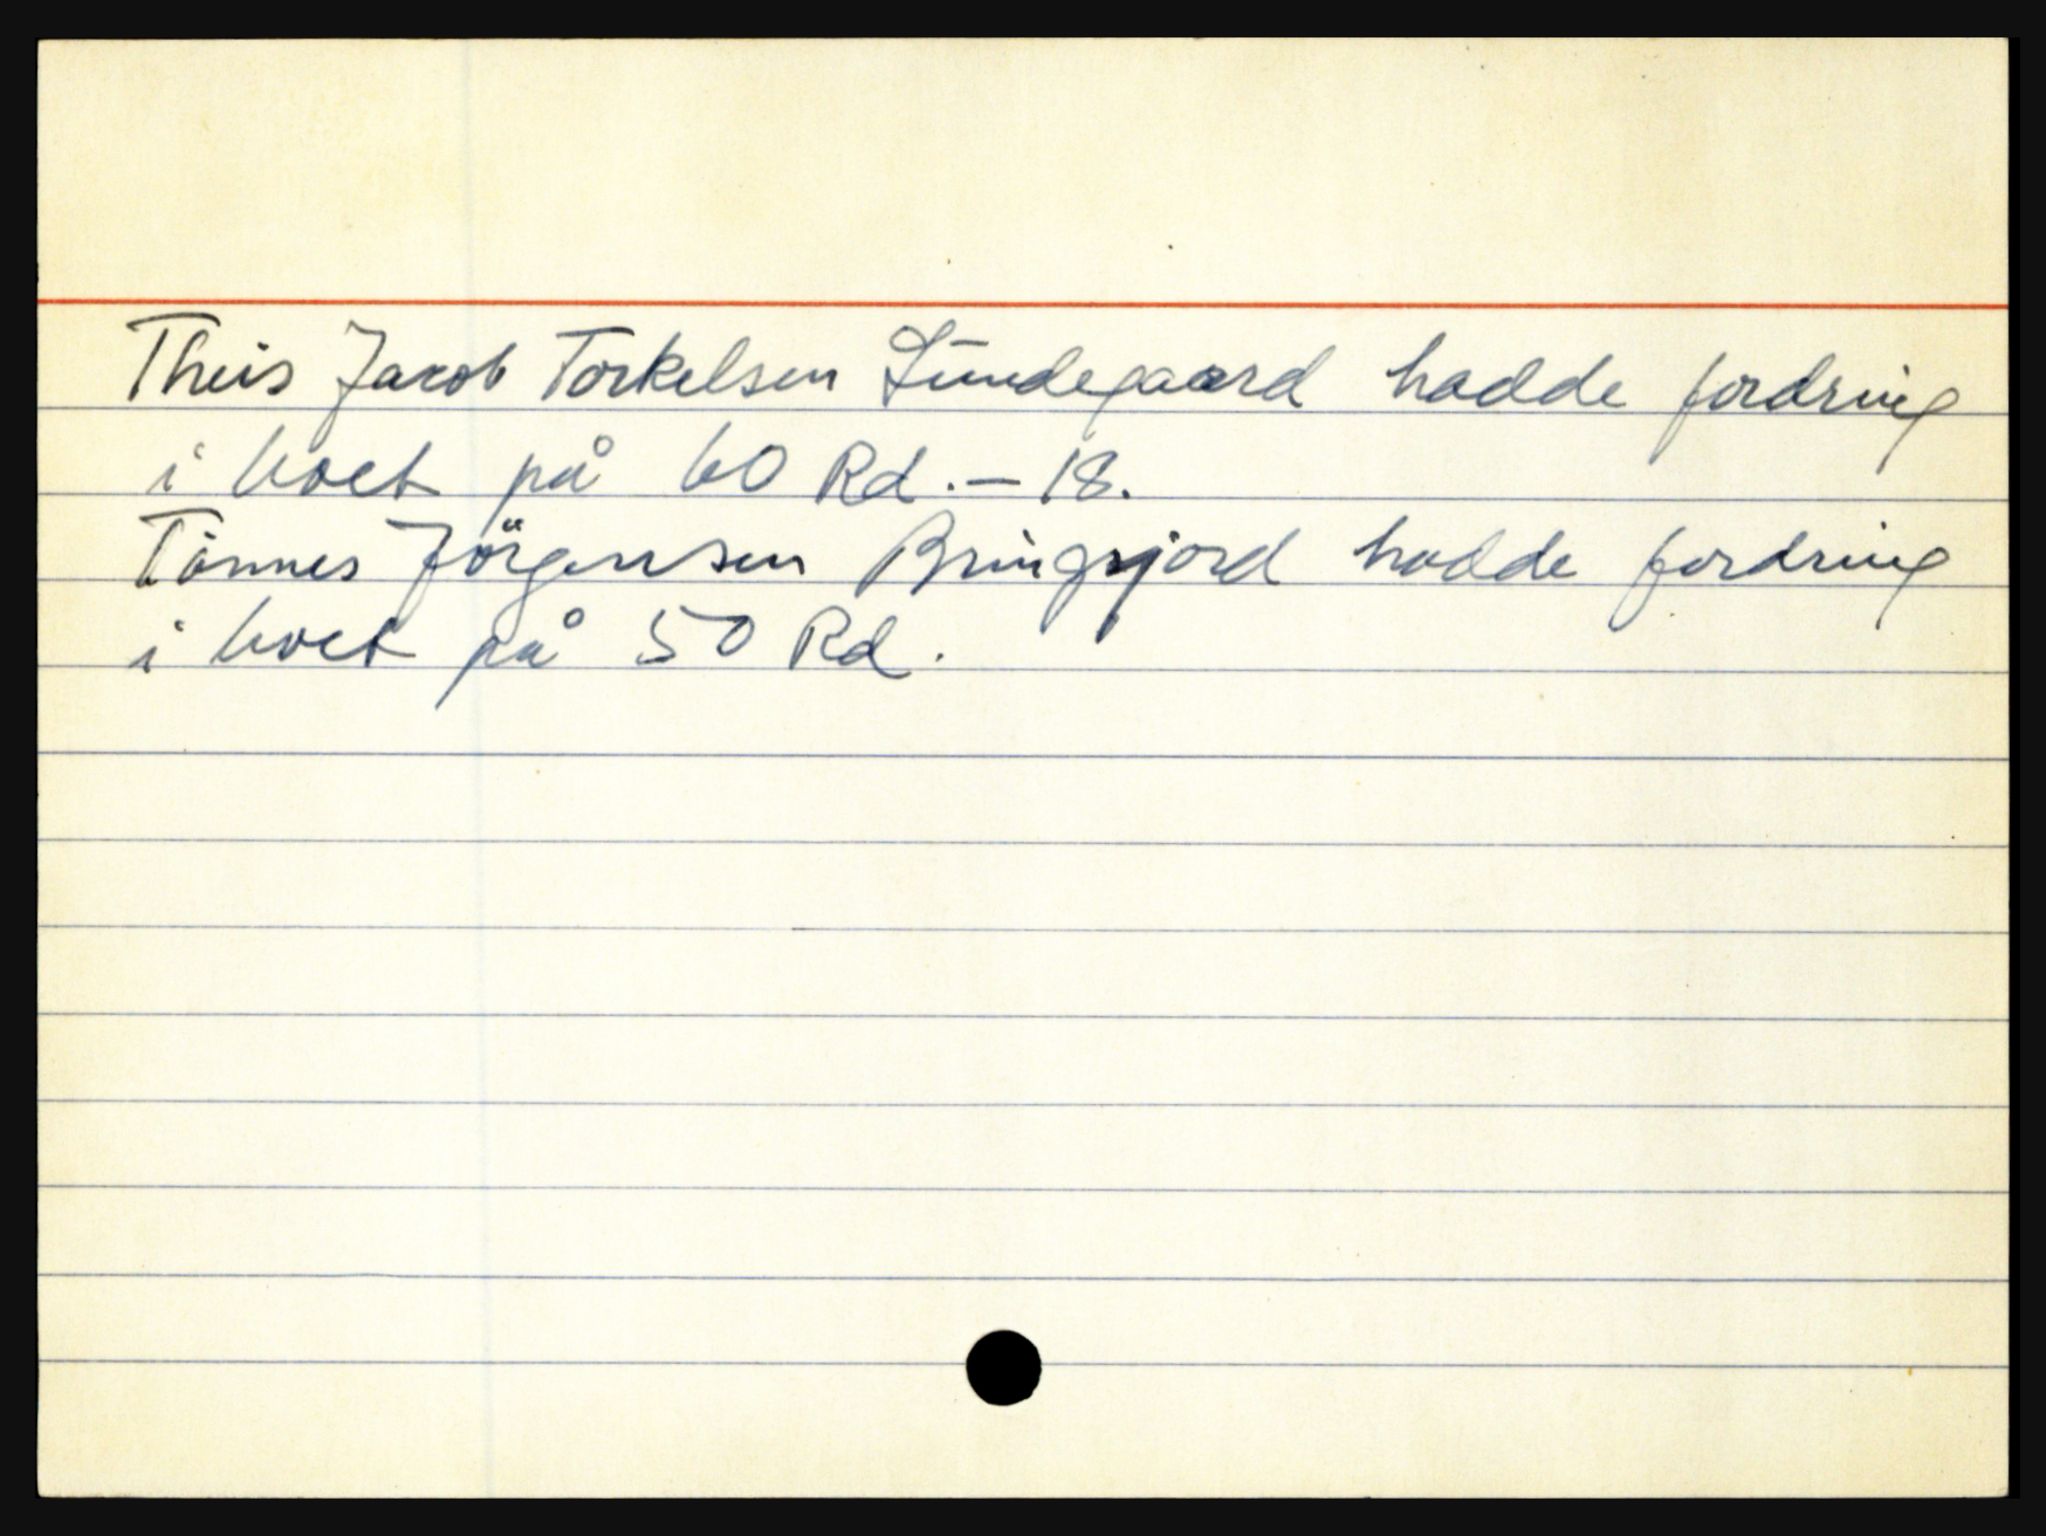 Theis Jacob Torkelsen Lundegaard hadde fordring
i boet på 60 Rd.— 18.
Tønnes Jörgensen Bringsjord hadde fordring
i boet på 50 Rd.